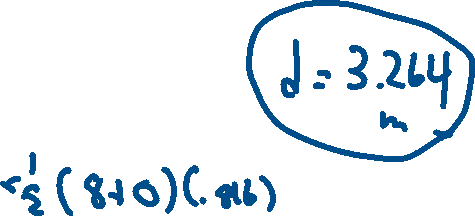 d = 3.264
m
= 1/2 (8+0)(.816)